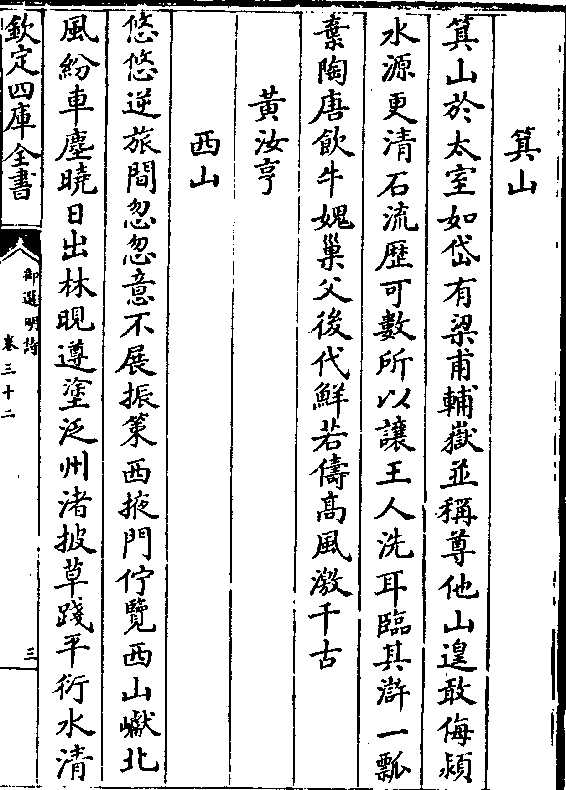 箕山
箕山於太室如岱有梁甫輔嶽並稱尊他山遑敢侮潁
水源更清石流歷可數所以讓王人洗耳臨其滸一瓢
棄陶唐飲牛媿巢父後代鮮若儔高風激千古
黃汝亨
西山
悠悠逆旅間忽忽意不展振策西掖門佇覽西山巘北
風紛車塵曉日出林晛遵塗泛州渚披草踐平衍水清
欽定四庫全書
御選明詩
卷三十二
三